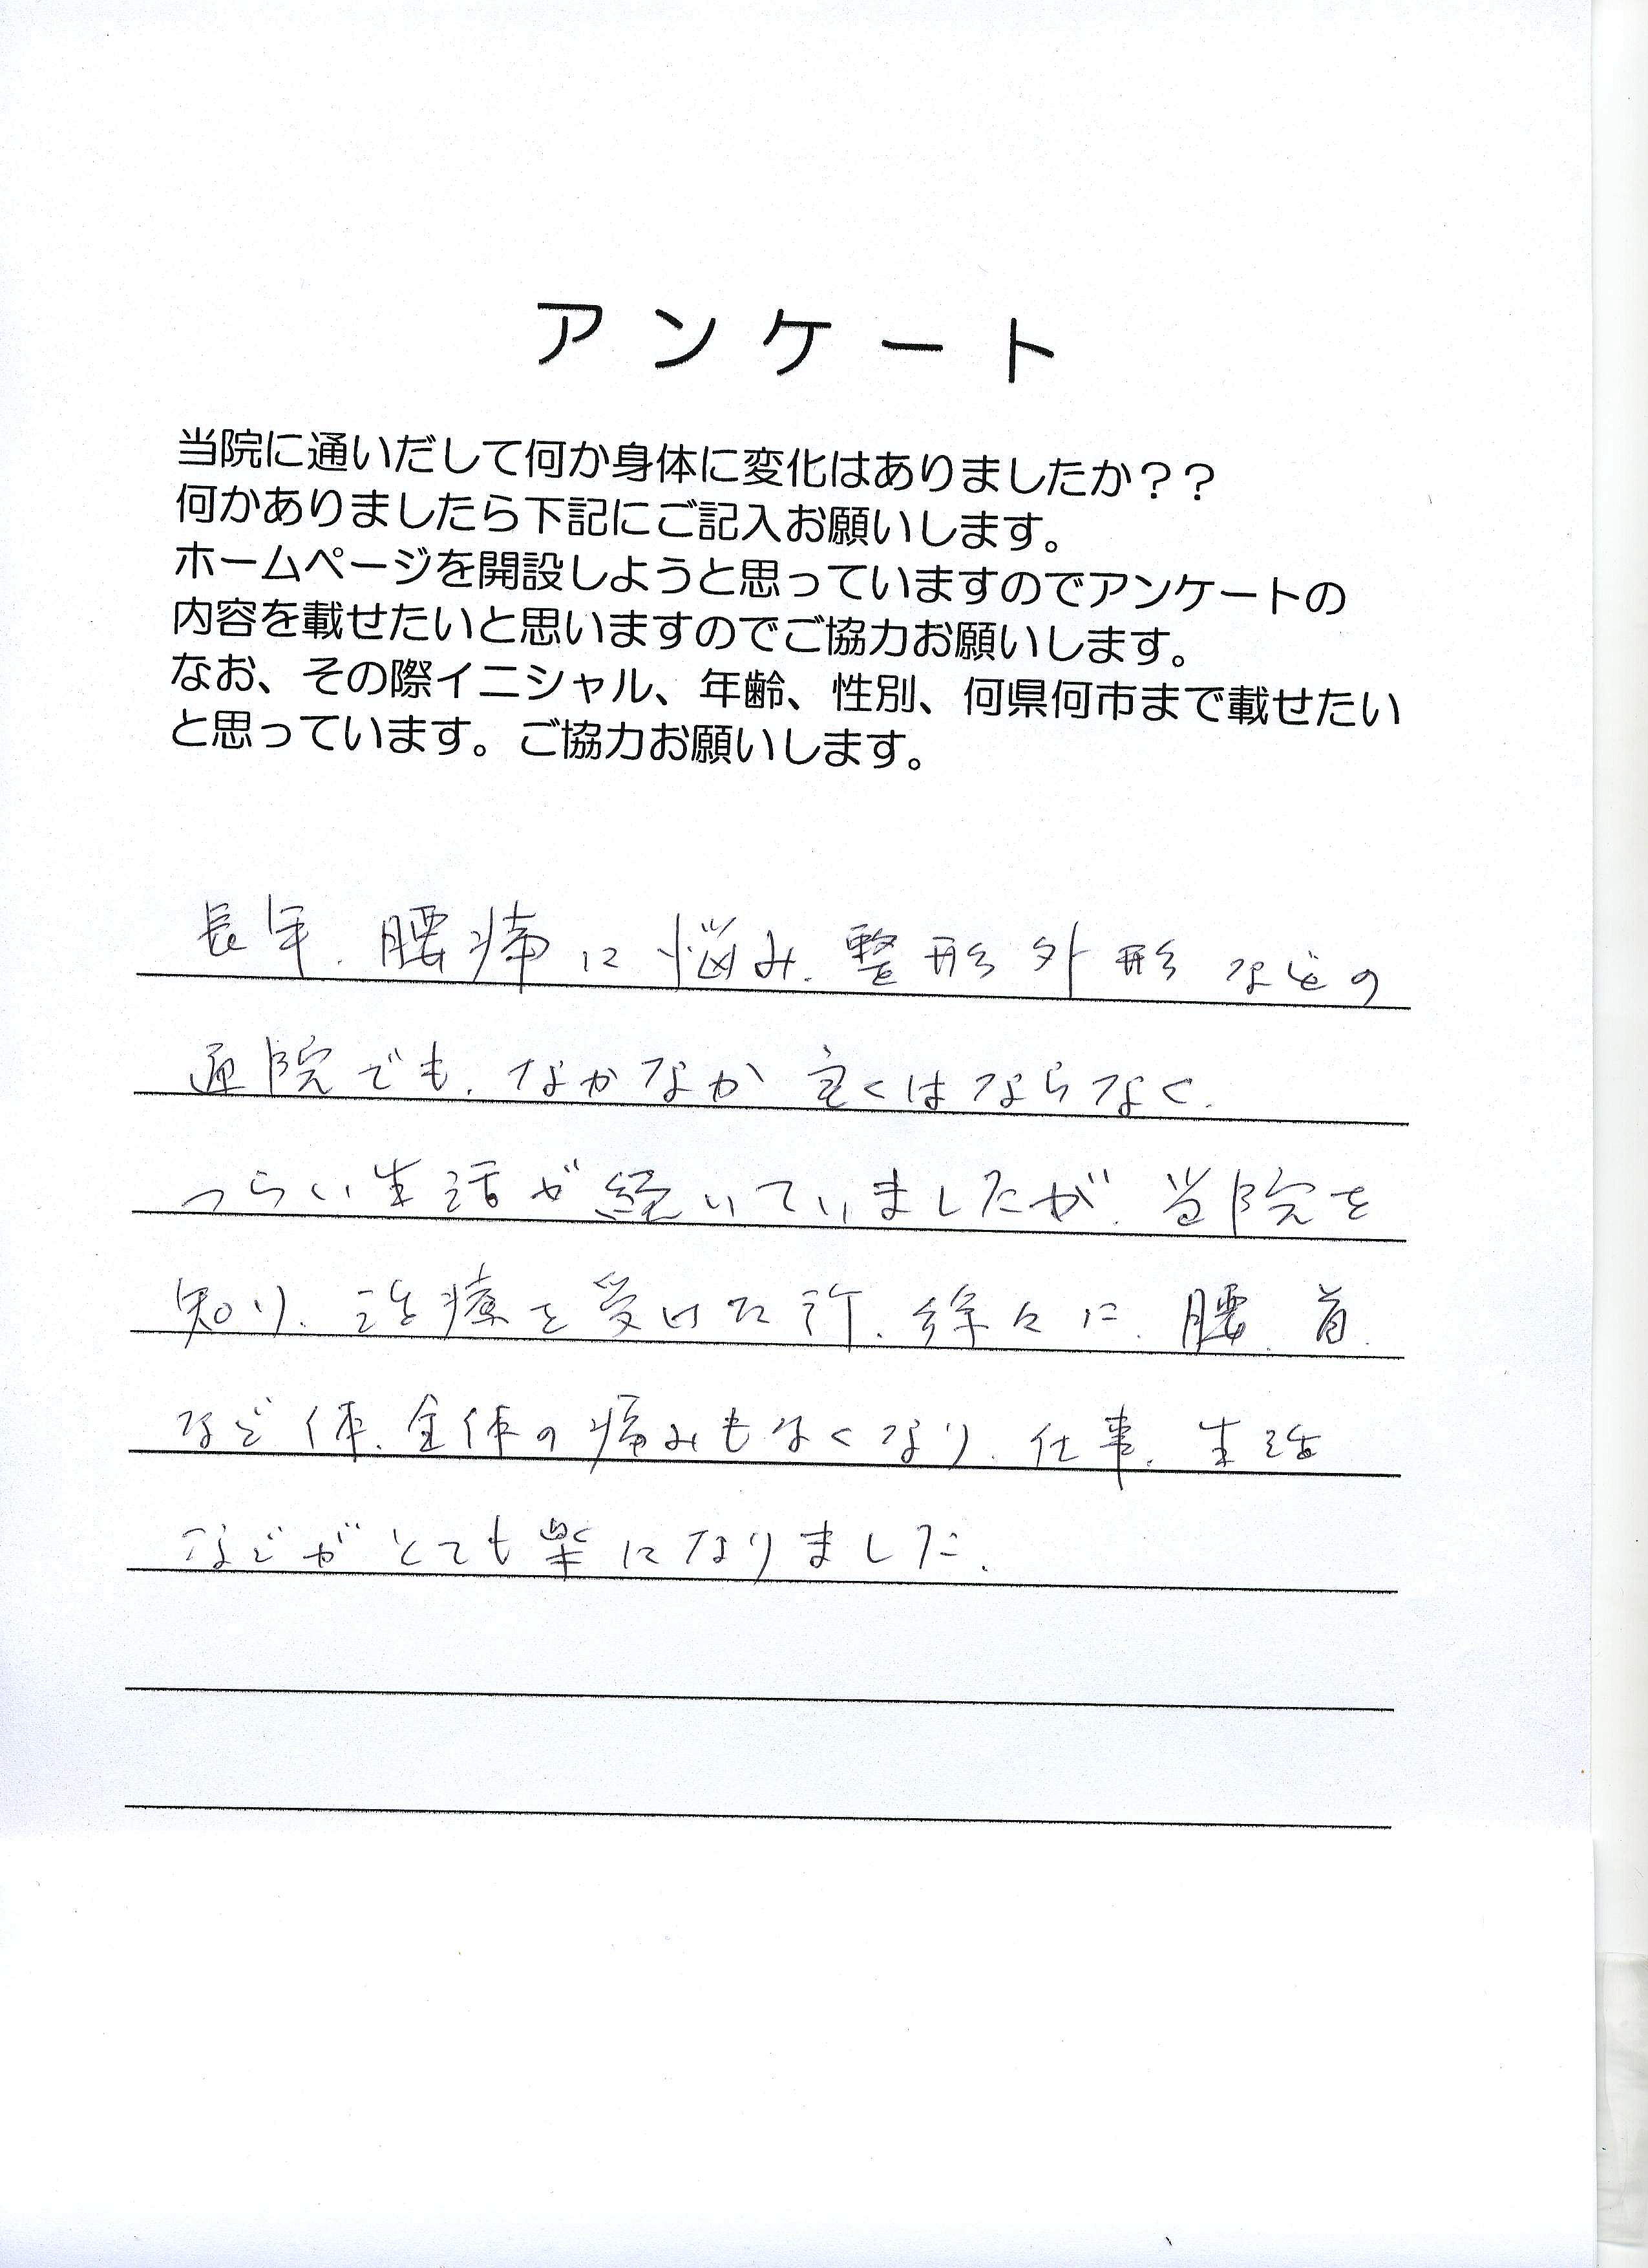 アンケート
当院に通いだして何か身体に変化はありましたか？？
何かありましたら下記にご記入お願いします。
ホームページを開設しようと思っていますのでアンケートの
内容を載せたいと思いますのでご協力お願いします。
なお、その際イニシャル、年齢、性別、何県何市まで載せたい
と思っています。ご協力お願いします。
長年、腰痛に悩み、整形外形などの
通院でも、なかなか良くはならなく、
つらい生活が続いていましたが、当院を
知り、治療を受けた所、徐々に、腰、首、
など体、全体の痛みもなくなり、仕事、生活
などがとても楽になりました。